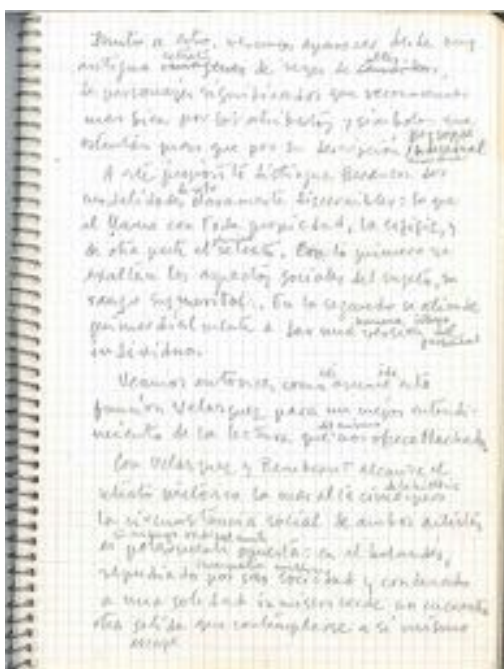 Junto a esto, veremos aparecer desde muy
antigua
retrato
de reyes de
de personajes significados que reconocemos
mas bien por los atributos y símbolos que
ostentan mas que por su descripción personal
A este propósito distingue Berenson dos
modalidades claramente discernibles: la que
él llama con toda propiedad, la esfigie, y
de otra parte el retrato. Con lo primero se
exaltan los aspectos sociales del sujeto, su
rango sus meritos. En lo segundo se atiende
primordialmente a una versión del
individuo.
Veamos entonces como asume esta
función Velazquez para un mejor entendi-
miento de la lectura que nos ofrece Machado
Con Velazquez y Rembrant alcanza el
retrato pictórico la mas alta cima
de la historia
la circunstancia social de ambos artistas
es opuesta: en el holandés,
repudiado por su sociedad y condenado
a una soledad inmisericorde no encuentra
otra salida que contemplarse a si mismo